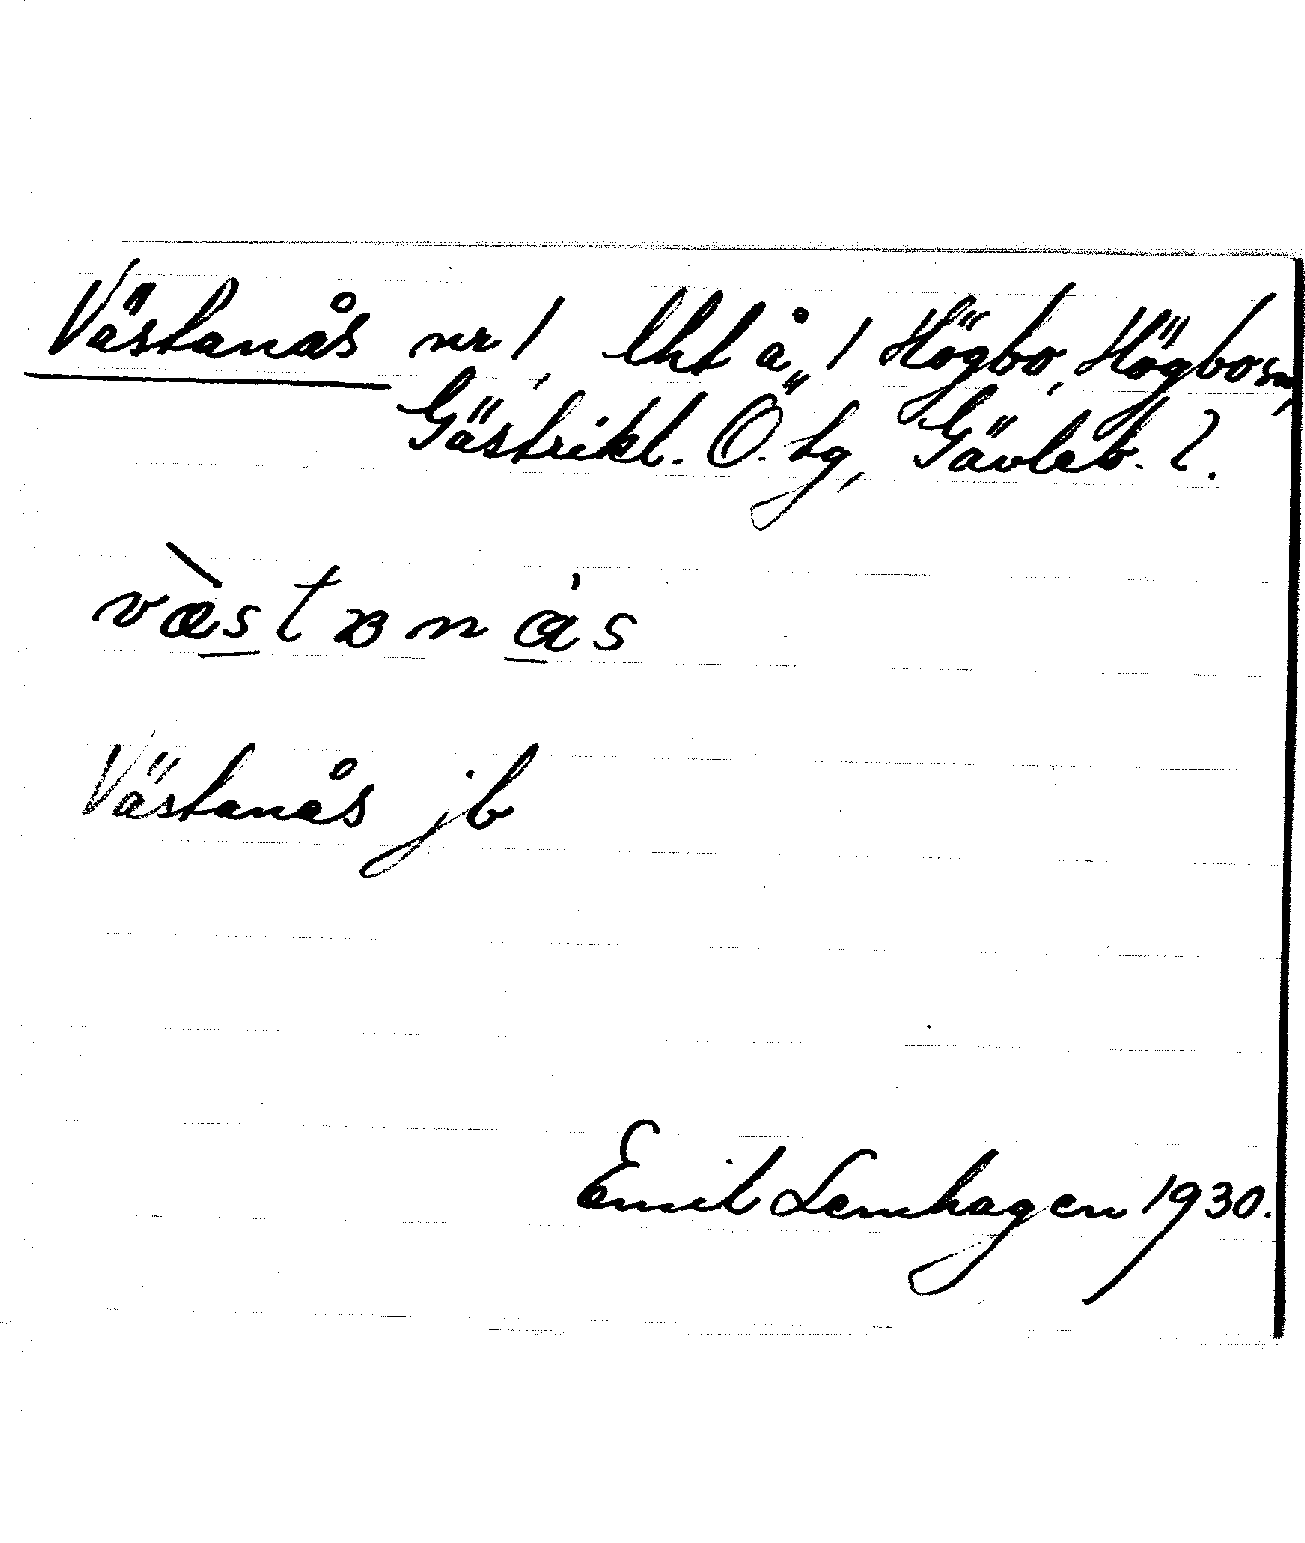 Västanås nr 1, lht å „ 1 Högbo, Högbo sn,
Gästrikl. Ö. tg, Gävleb. l.
Västanås jb
Emil Lemhagen 1930.